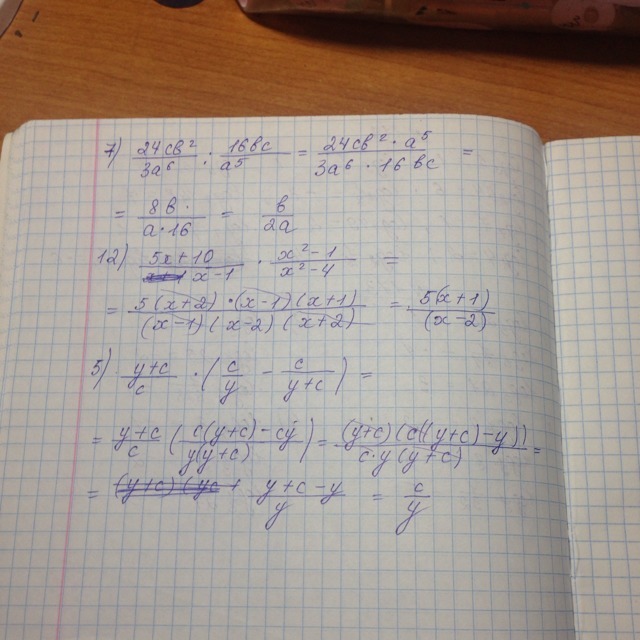 7) 24cb²/3a⁶ : 16bc/a⁵ = 24cb² · a⁵/3a⁶ · 16bc =
= 8b·/a·16 = b/2a
12) 5x+10/x-1 · x²-1/x²-4 =
= 5(x+2)·(x-1)(x+1)/(x-1)(x-2)(x+2) = 5(x+1)/(x-2)
5) y+c/c · (c/y - c/y+c) =
= y+c/c (c(y+c)-cy/y(y+c)) = (y+c)(c((y+c)-y))/c·y(y+c) =
= y+c-y/y = c/y